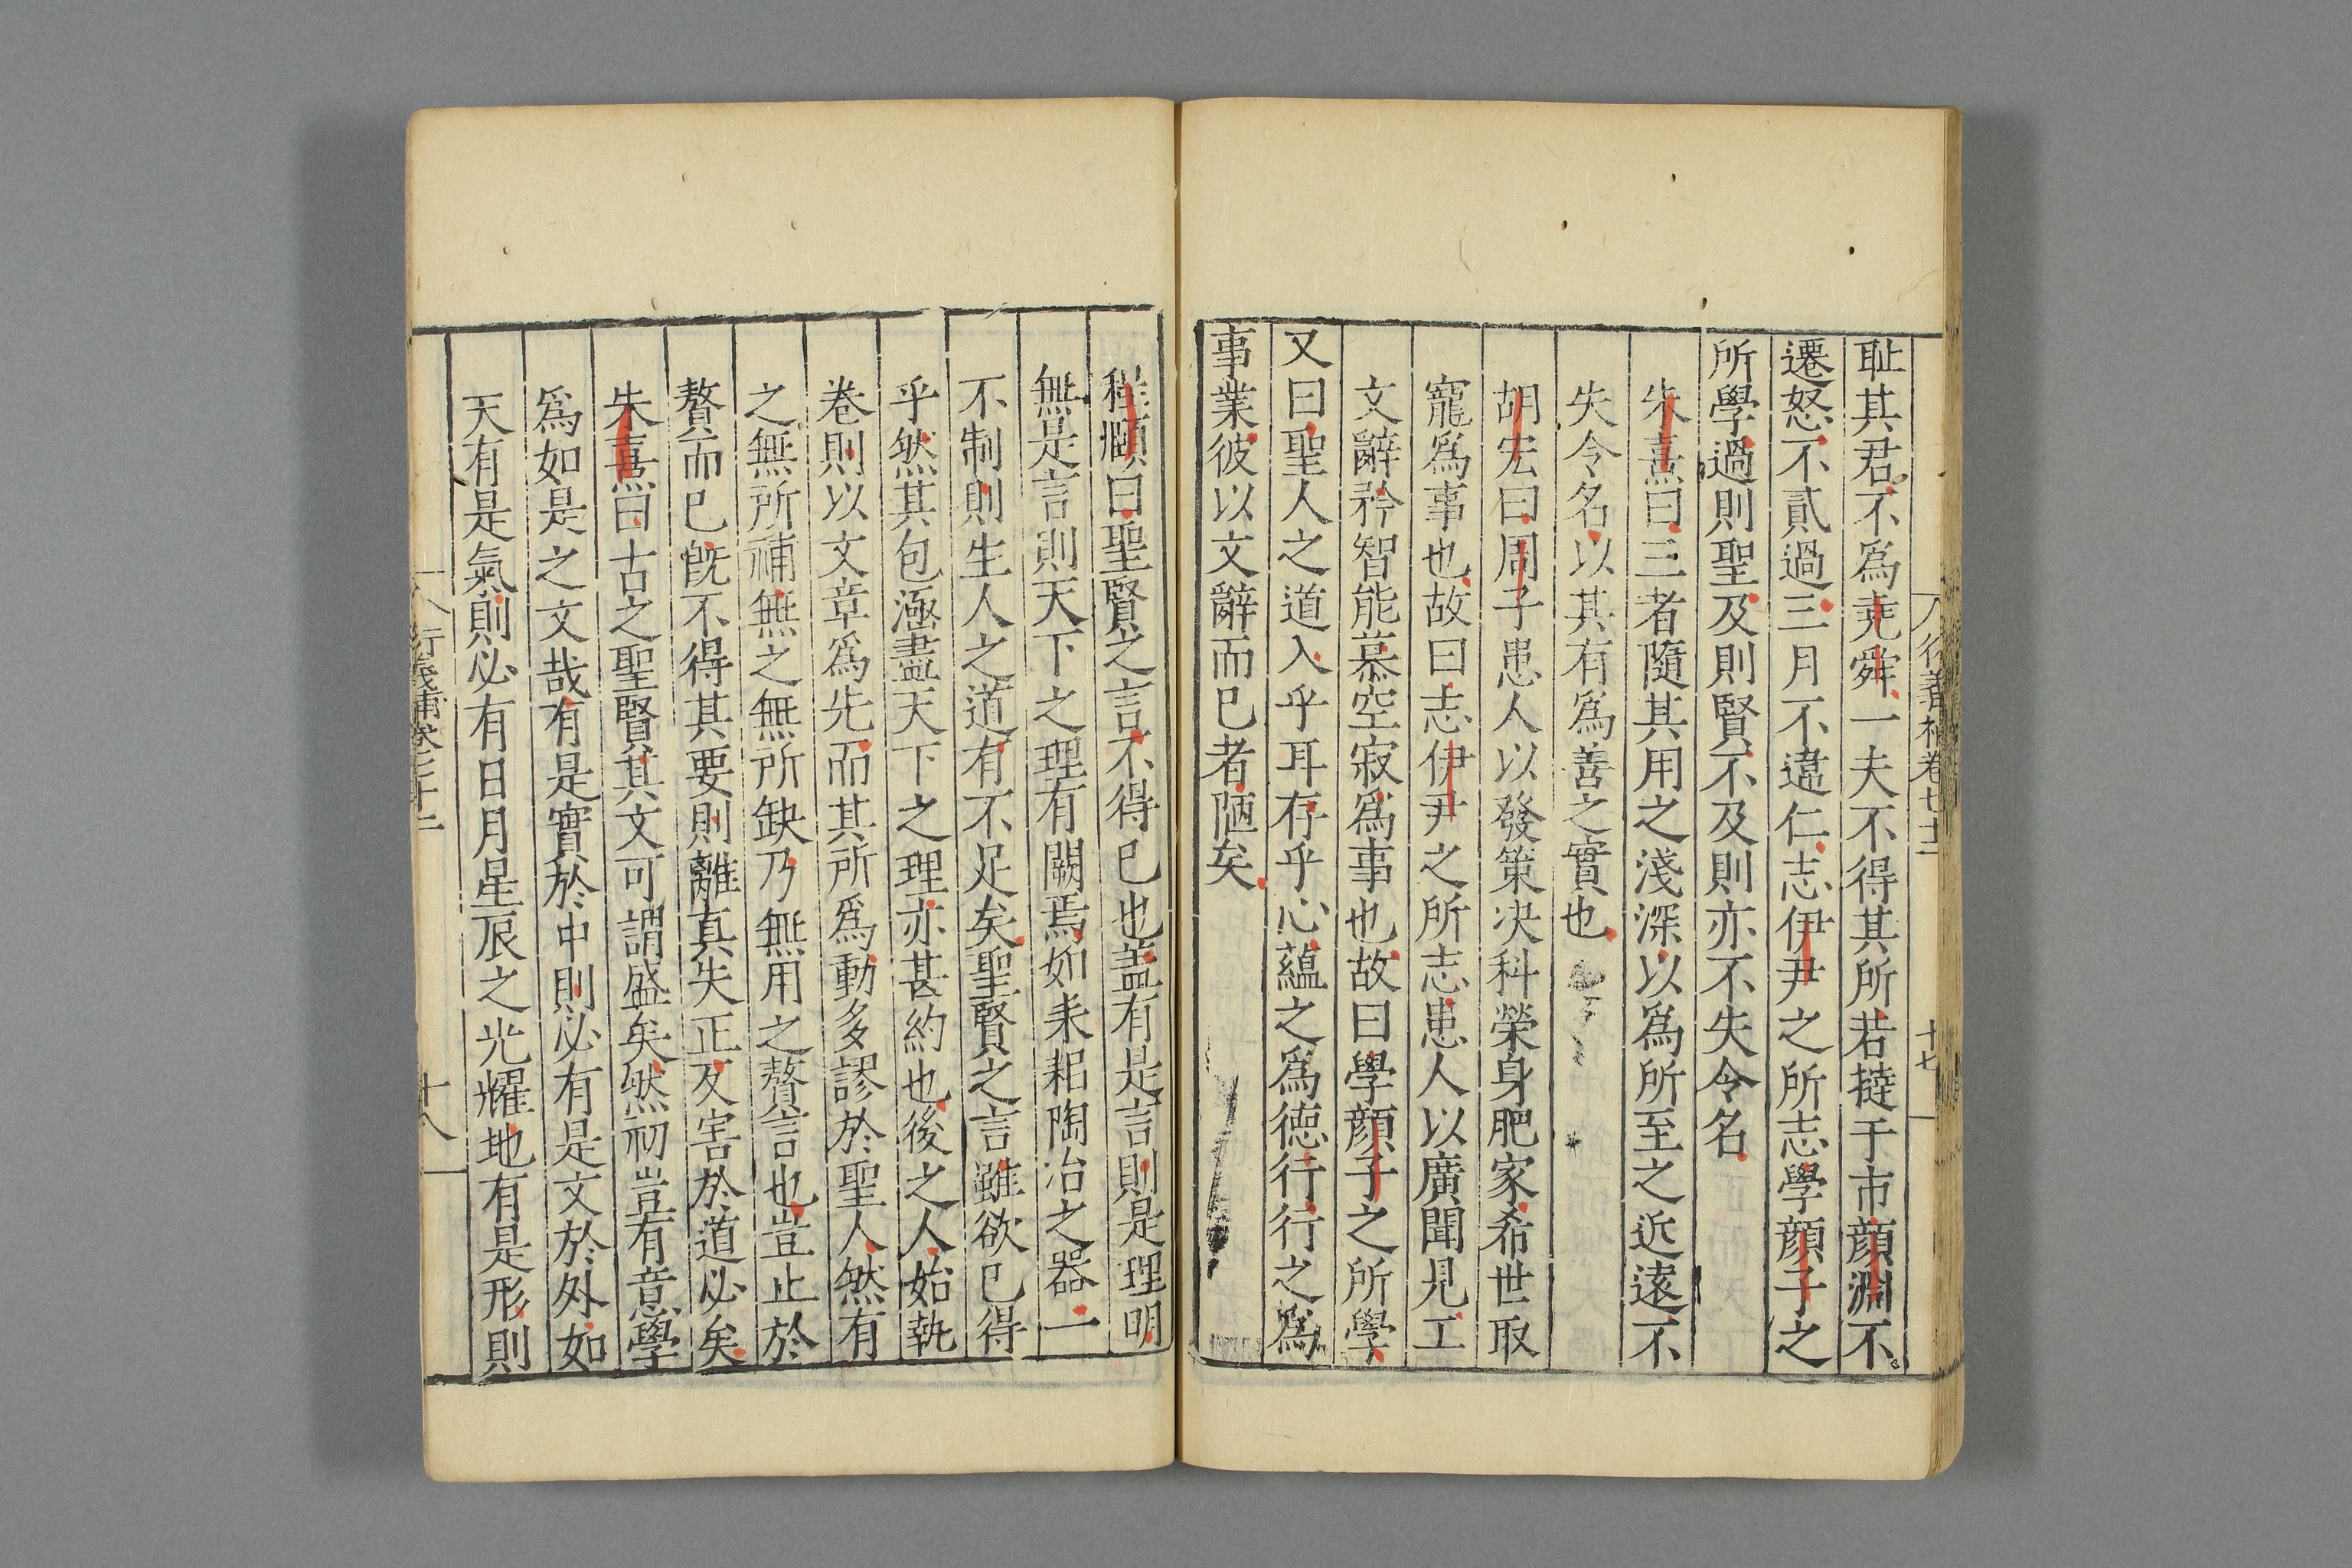 耻其君不爲堯舜一夫不得其所若撻于市顔淵不
遷怒不貳過三月不違仁志伊尹之所志學顔子之
所學過則聖及則賢不及則亦不失令名
朱熹曰三者隨其用之淺深以爲所至之近遠不
失令名以其有爲善之實也
胡宏曰周子患人以發策决科榮身肥家希世取
寵爲事也故曰志伊尹之所志患人以廣聞見工
文辭矜智能慕空寂爲事也故曰學顔子之所學
又曰聖人之道入乎耳存乎心蘊之爲德行行之爲
事業彼以文辭而已者陋矣
程頤曰聖賢之言不得已也盖有是言則是理明
無是言則天下之理有闕焉如耒耜陶冶之器一
不制則生人之道有不足矣聖賢之言雖欲已得
乎然其包涵盡天下之理亦甚約也後之人始執
卷則以文章爲先而其所爲動多謬於聖人然有
之無所補無之無所缺乃無用之贅言也豈止於
贅而已旣不得其要則離真失正反害於道必矣
朱熹曰古之聖賢其文可謂盛矣然初豈有意學
爲如是之文哉有是實於中則必有是文於外如
天有是氣則必有日月星辰之光耀地有是形則
十八